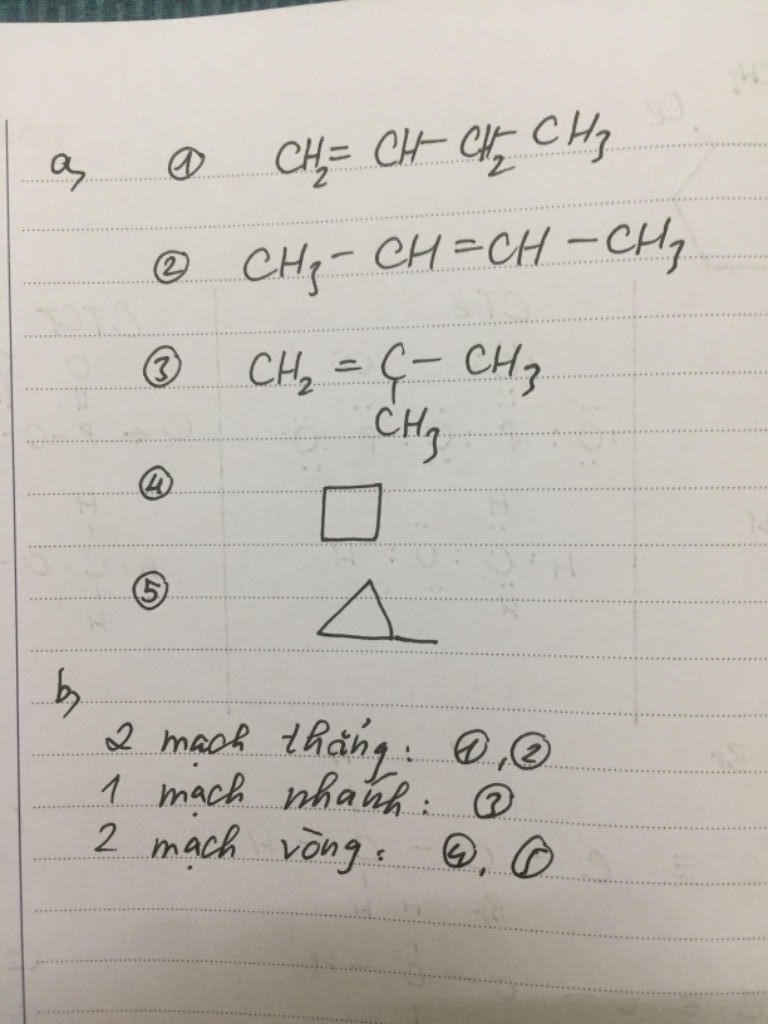 a, ① CH₂= CH- CH₂- CH₃
② CH₃- CH=CH-CH₃
③ CH₂ = C- CH₃
CH₃
④
⑤
b,
2 mạch thẳng: ①,②
1 mạch nhánh: ③
2 mạch vòng: ④, ⑤